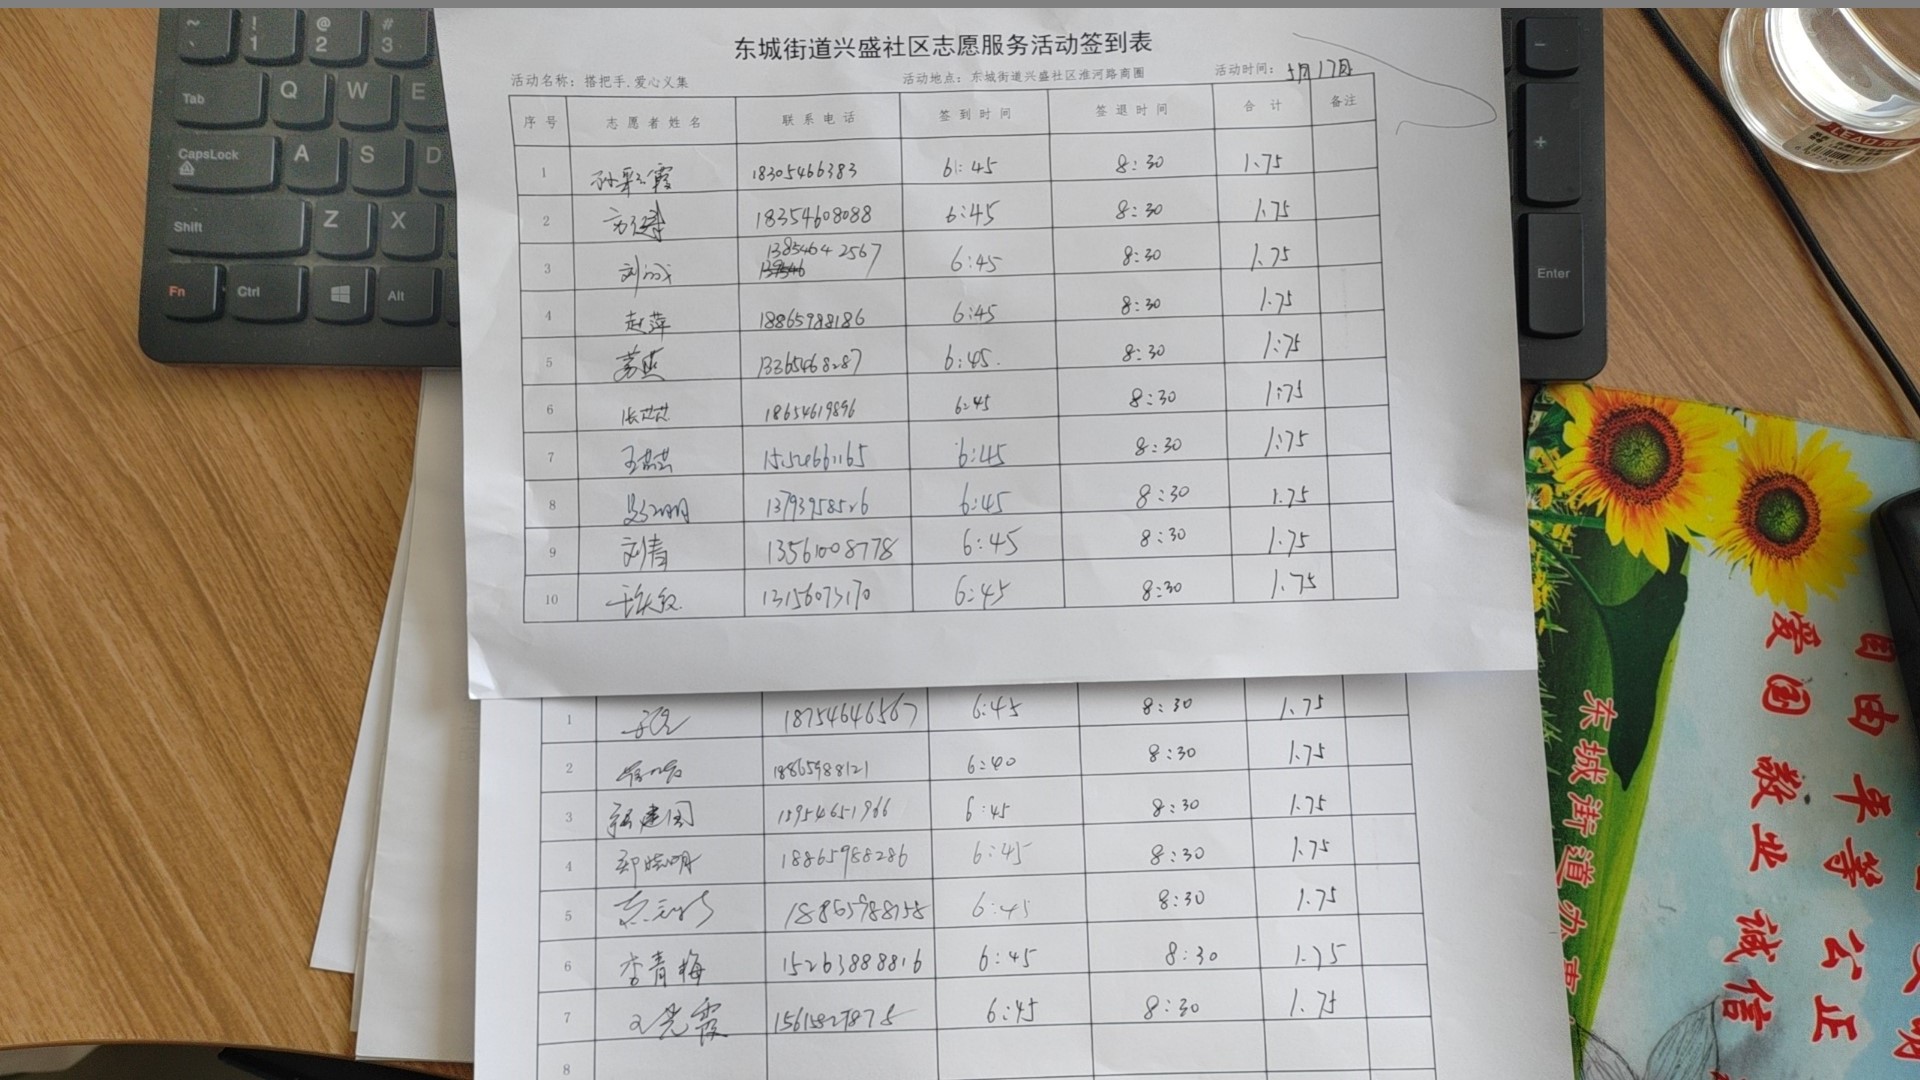 东城街道兴盛社区志愿服务活动签到表
活动名称：搭把手.爱心义集 活动地点：东城街道兴盛社区淮河路商圈 活动时间：5月17日
序号 志愿者姓名 联系电话 签到时间 签退时间 合计 备注
1 孙彩霞 18305466383 6:45 8:30 1.75
2 18354608088 6:45 8:30 1.75
3 13854642567 6:45 8:30 1.75
4 赵萍 18865988186 6:45 8:30 1.75
5 13365468287 6:45. 8:30 1.75
6 张芸芸 18654619896 6:45 8:30 1.75
7 王芸芸 6:45 8:30 1.75
8 13793958526 6:45 8:30 1.75
9 刘青 13561008778 6:45 8:30 1.75
10 13156073170 6:45 8:30 1.75
1 18754646567 6:45 8:30 1.75
2 18865988121 6:40 8:30 1.75
3 15954651966 6:45 8:30 1.75
4 郑晓明 18865988286 6:45 8:30 1.75
5 18865988158 6:45 8:30 1.75
6 李青梅 15263888816 6:45 8:30 1.75
7 王光霞 15615827875 6:45 8:30 1.75
8
~
、
!
1
@
2
#
3
Tab
Q
W
E
CapsLock
A
S
D
Shift
Z
X
Fn
Ctrl
Alt
-
+
Enter
LEAD
自由 平等 公正
爱国 敬业 诚信
东城街道办事